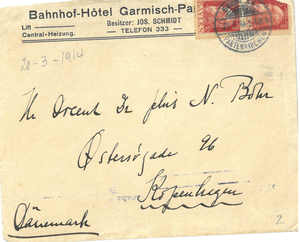 Bahnhof-Hôtel Garmisch-Pa
Besitzer: JOS. SCHMIDT
Lift
Central-Heizung.
TELEFON 333
20-3-1914
Hr Docent Dr phil N. Bohr
Østersøgade 96
Kopenhagen
Dänemark
2